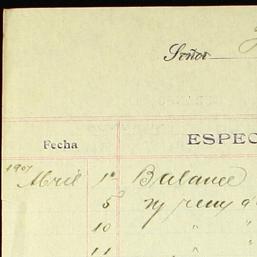 Señor
Fecha ESPEC
1907
Abril 1º Balance
5
10 " "
11 "